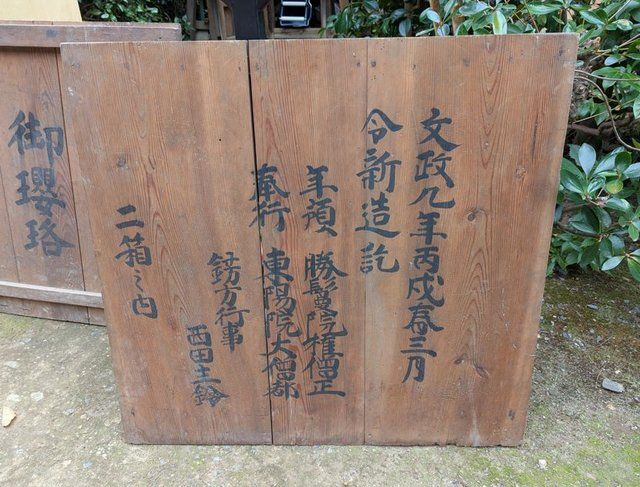 文政九年丙戌春三月
令新造訖
年預 勝鬘院権僧正
奉行 東陽院大僧都
錺方行事
西田主鈴
二箱之内
御瓔珞